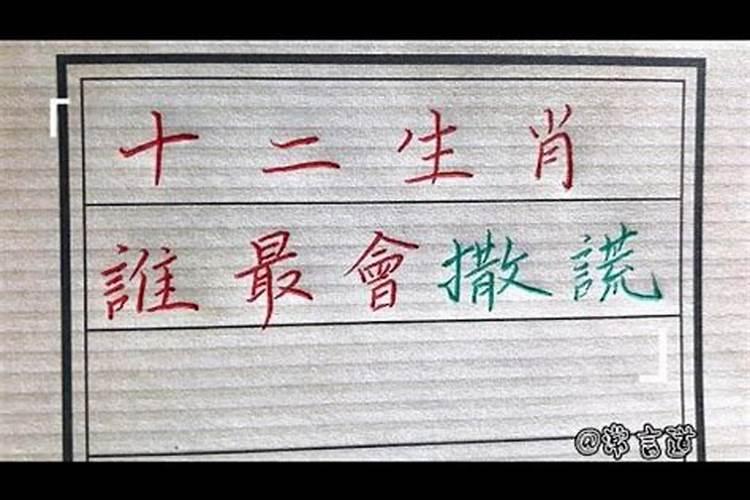 十二生肖
誰最會撒謊
@常言道